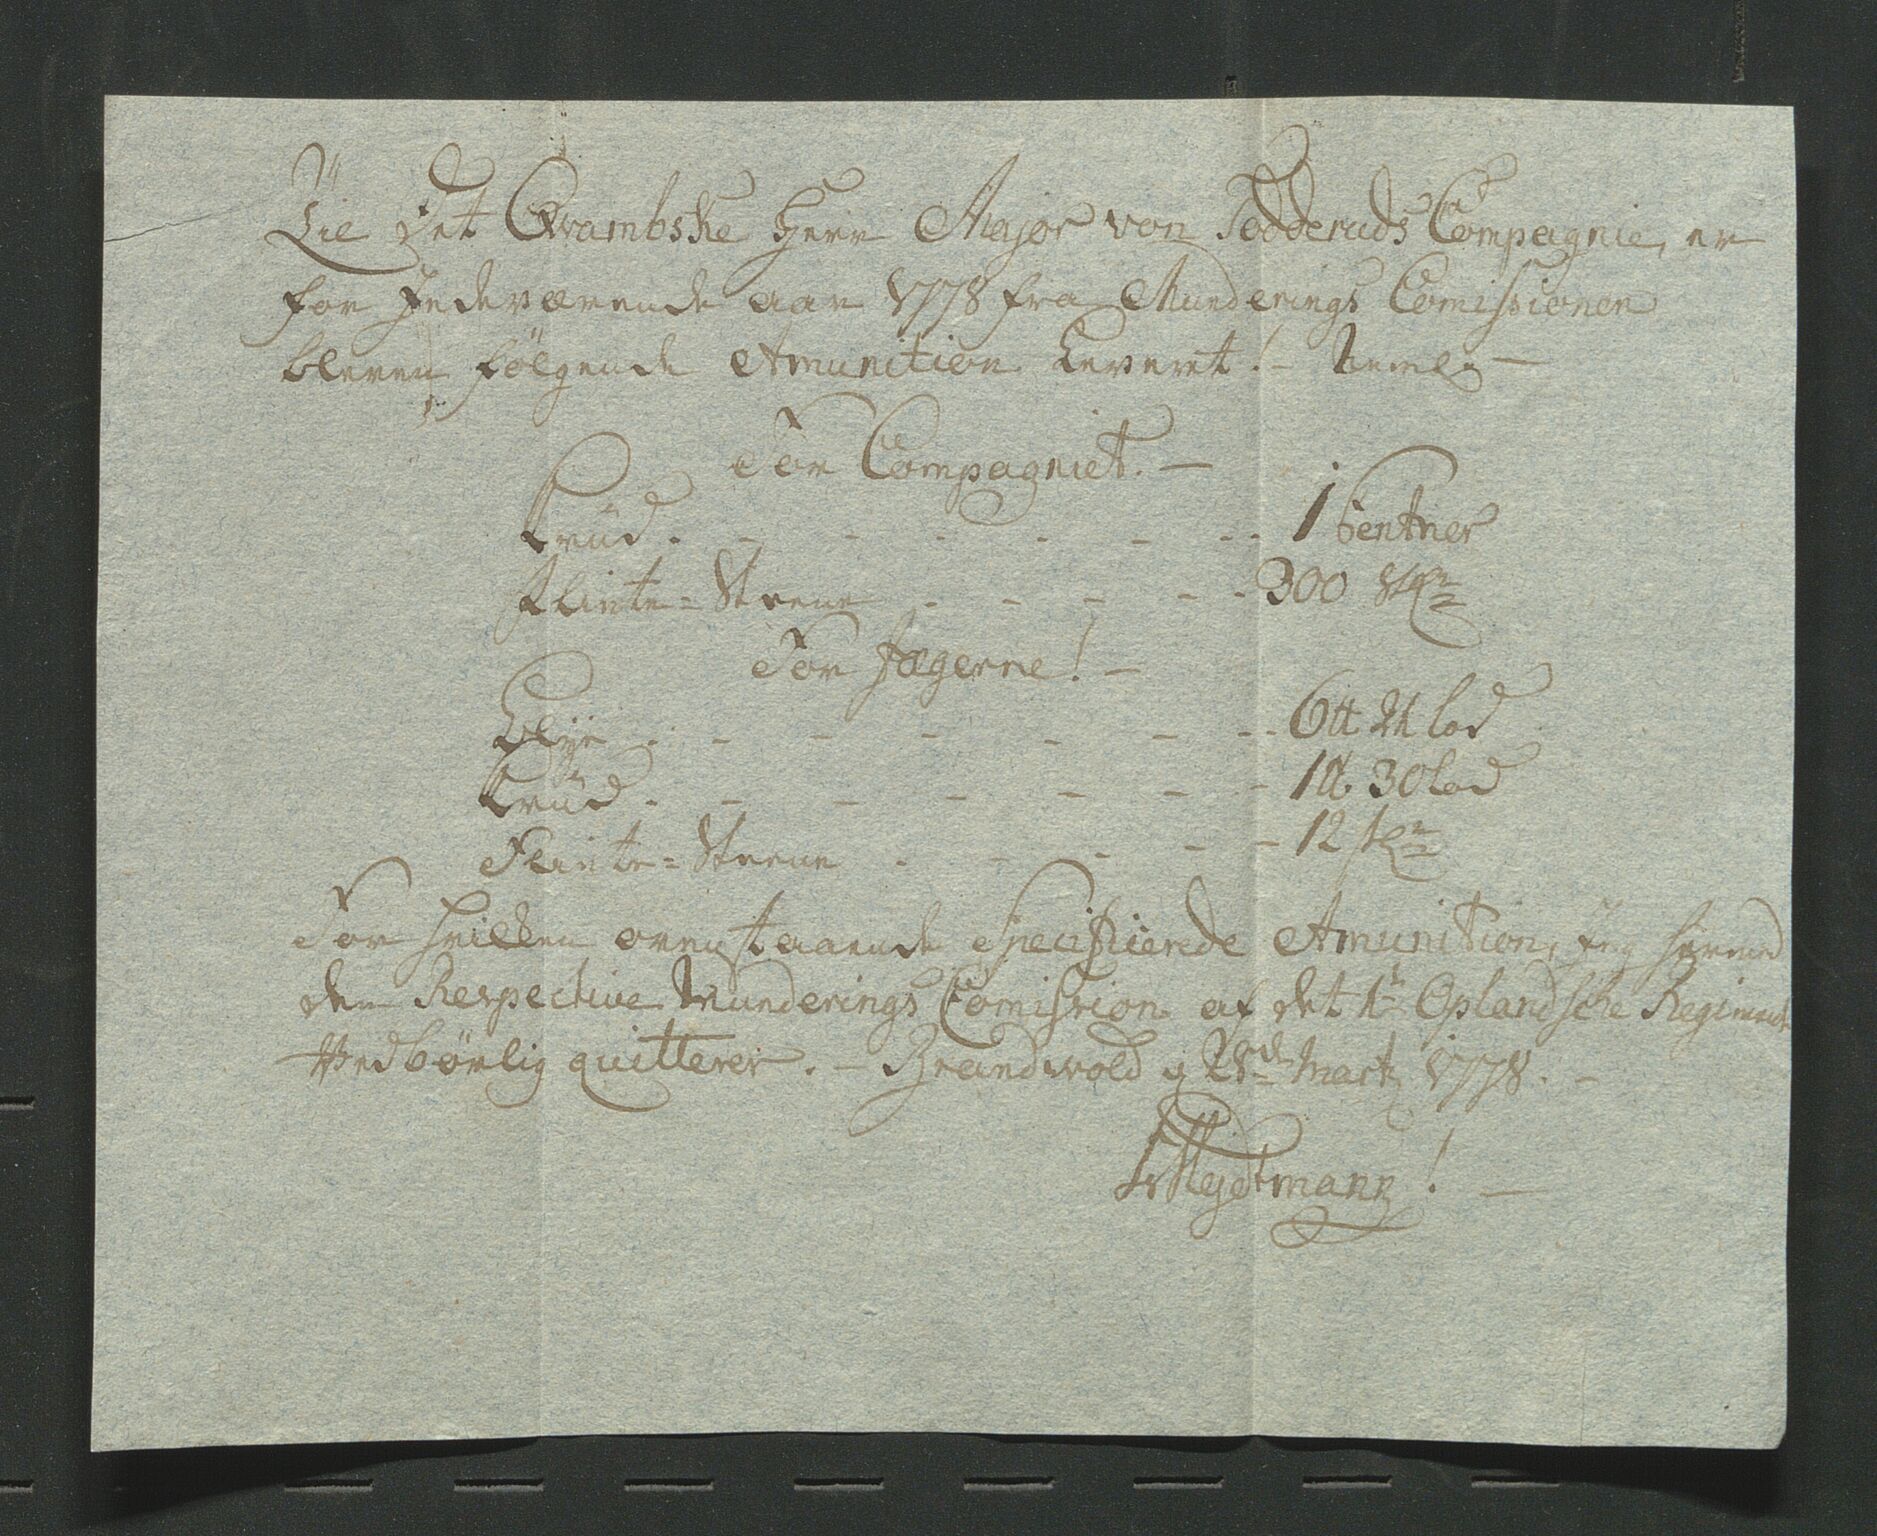 Til Det Qvambske Herr Major von Todderuds Compagnie, er
for Indeværende aar 1778 fra Munderings Comissionen
bleven følgende Amunition Leveret! - Neml:
For Compagniet. -
Krüd. - - - - - - - 1 Centner
Flinte=Steene - - - - - 300 Stk:
For Jægerne! -
Blye - - - - - - - 6 ℔ 21 lod
Krüd. - - - - - - - 1 ℔ 30 lod
Flinte=Steene - - - - - 12 Stk:
For hvilken ovenstaaende Specificerede Amunition, Jeg herved
den Respective Munderings Comission af det 1te Oplandske Regiment
Vedbørlig quitterer. - Brandwold 28de Marti 1778. -
Heydtmann! -